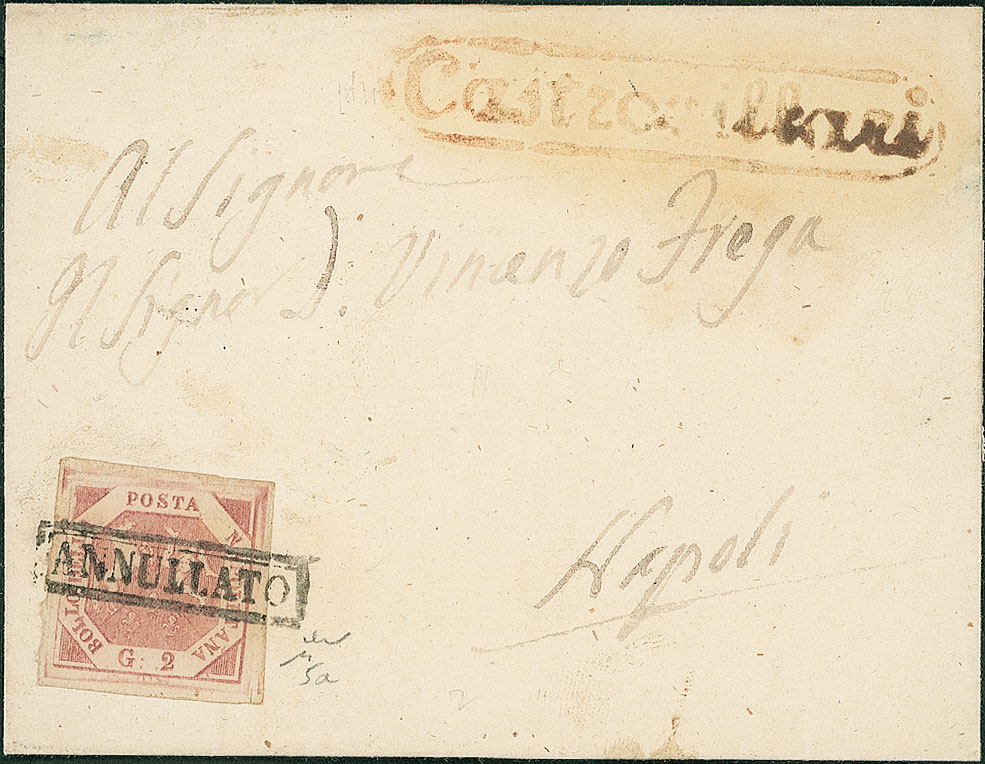 Castrovillari
Al Signore
Il Signor D. Vincenzo Frega
Napoli
POSTA
BOLLO
G: 2
ANNULLATO
5a